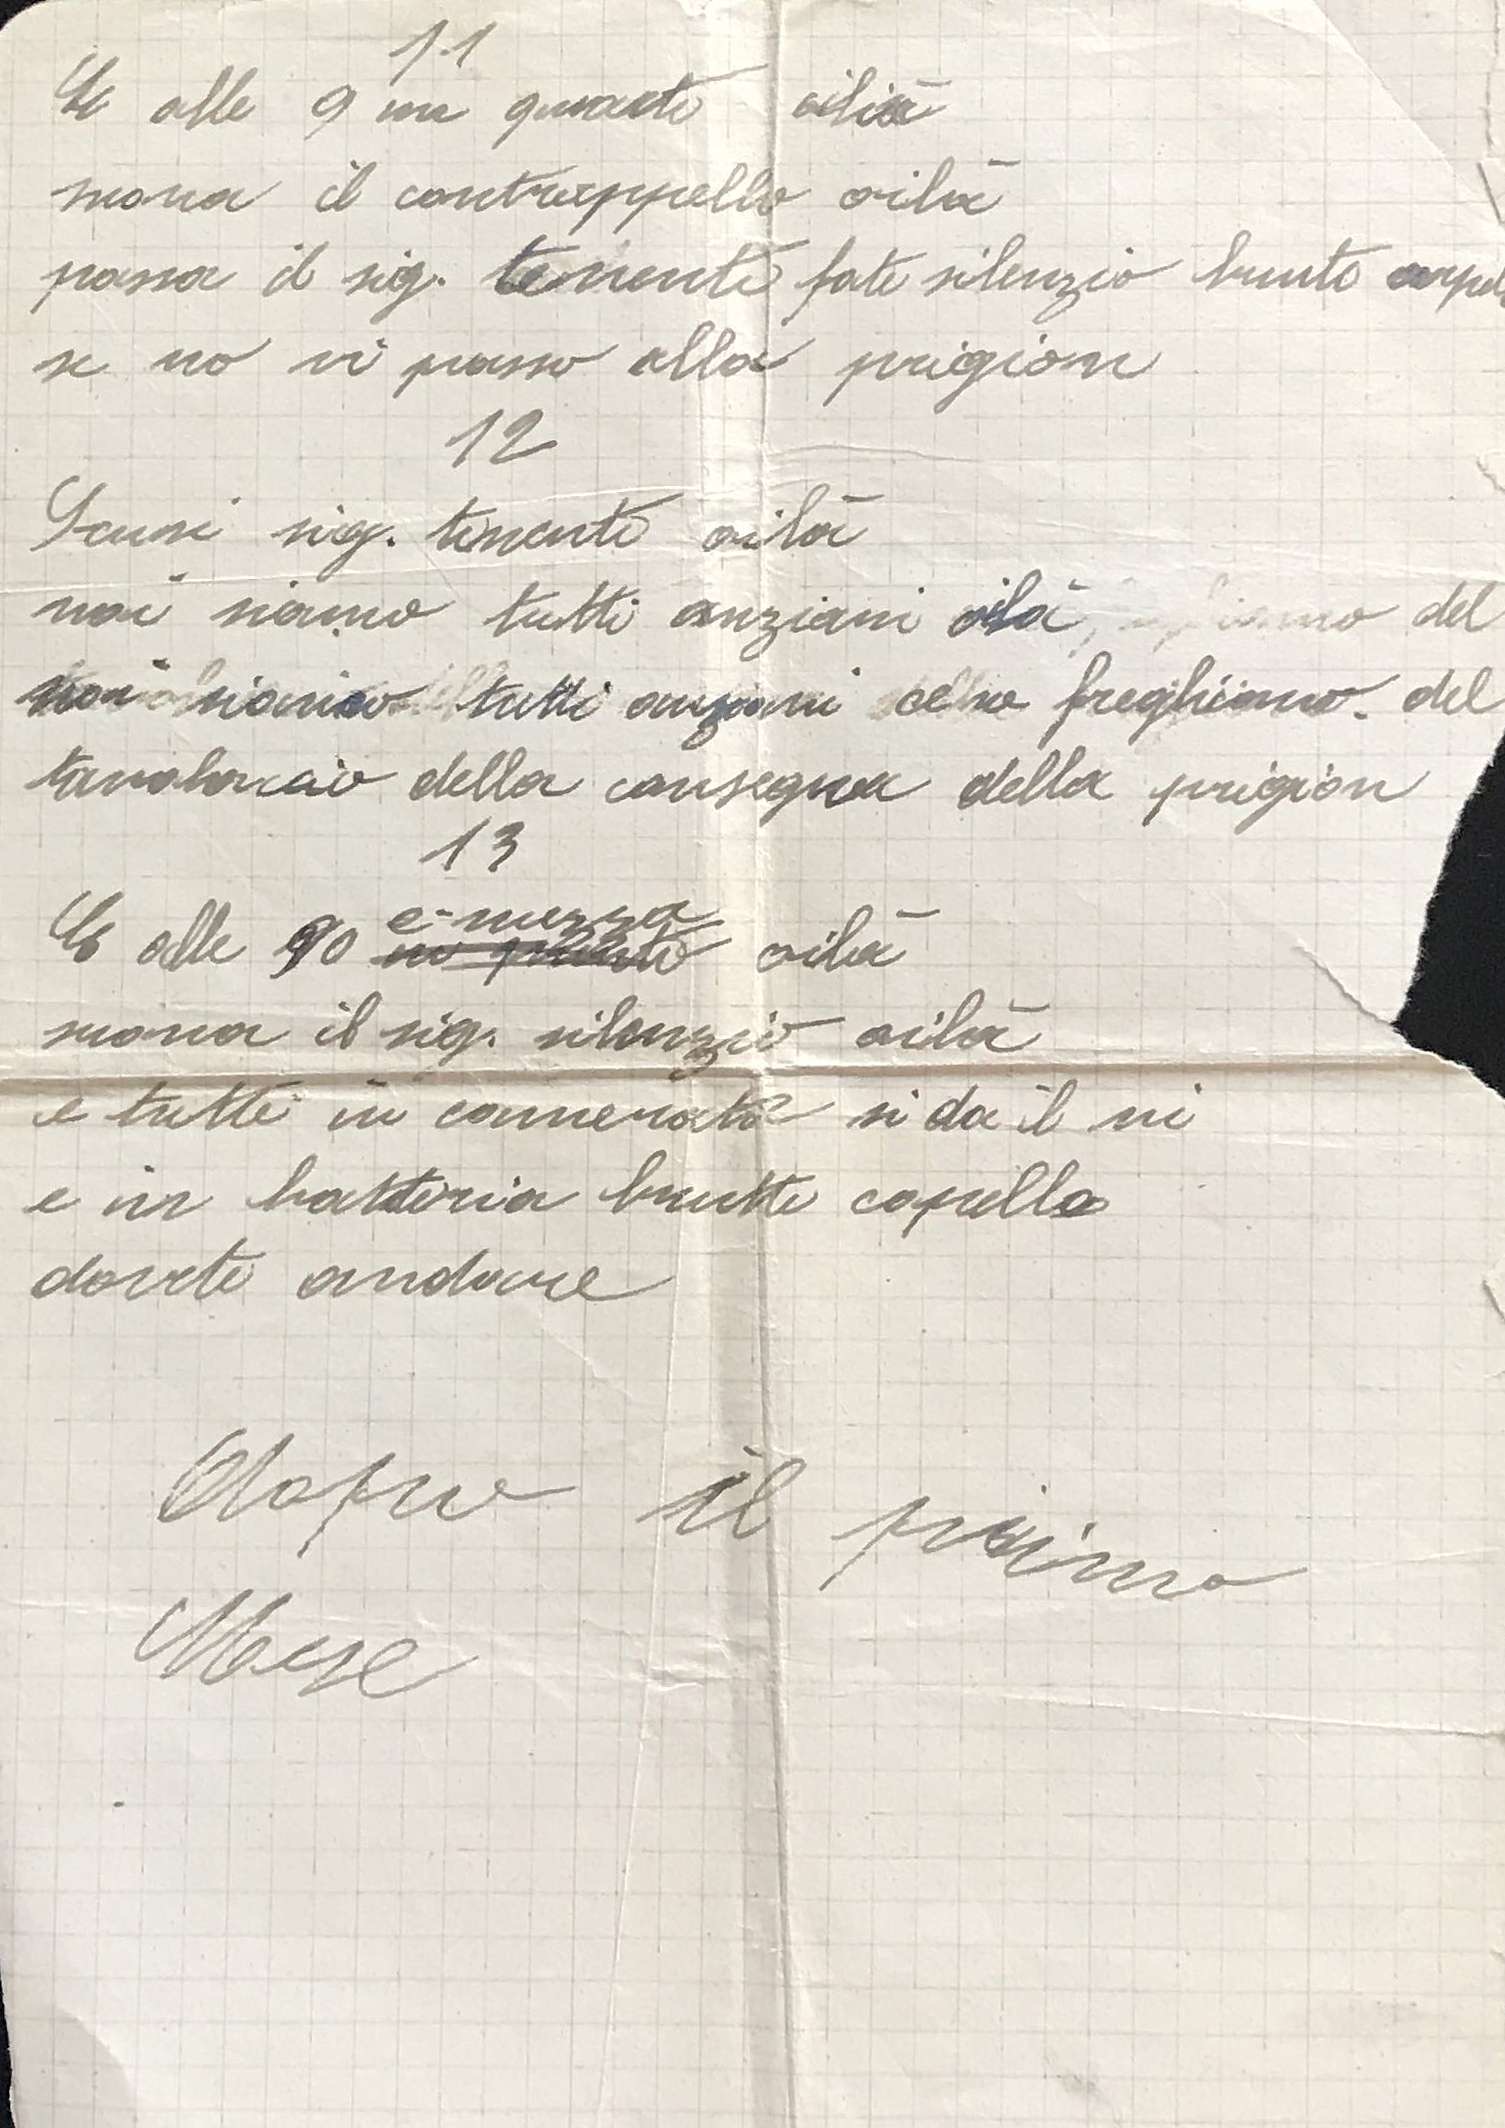 11
E alle 9 un quarto oilià
suona il contrappello oilà
passa il sig. tenente fate silenzio brute
se no vi passo alla prigion
12
Scusi sig. tenente oilà
noi siamo tutti anziani oilà, del
noi siamo tutti anziani ce ne freghiamo. del
tavolaccio della consegna della prigion
13
E alle 90 e mezza oilà
suona il sig. silenzio oilà
e tutti in camerata si da il vi
e in batteria brutti capello
dovete andare
Dopo il primo
Mese